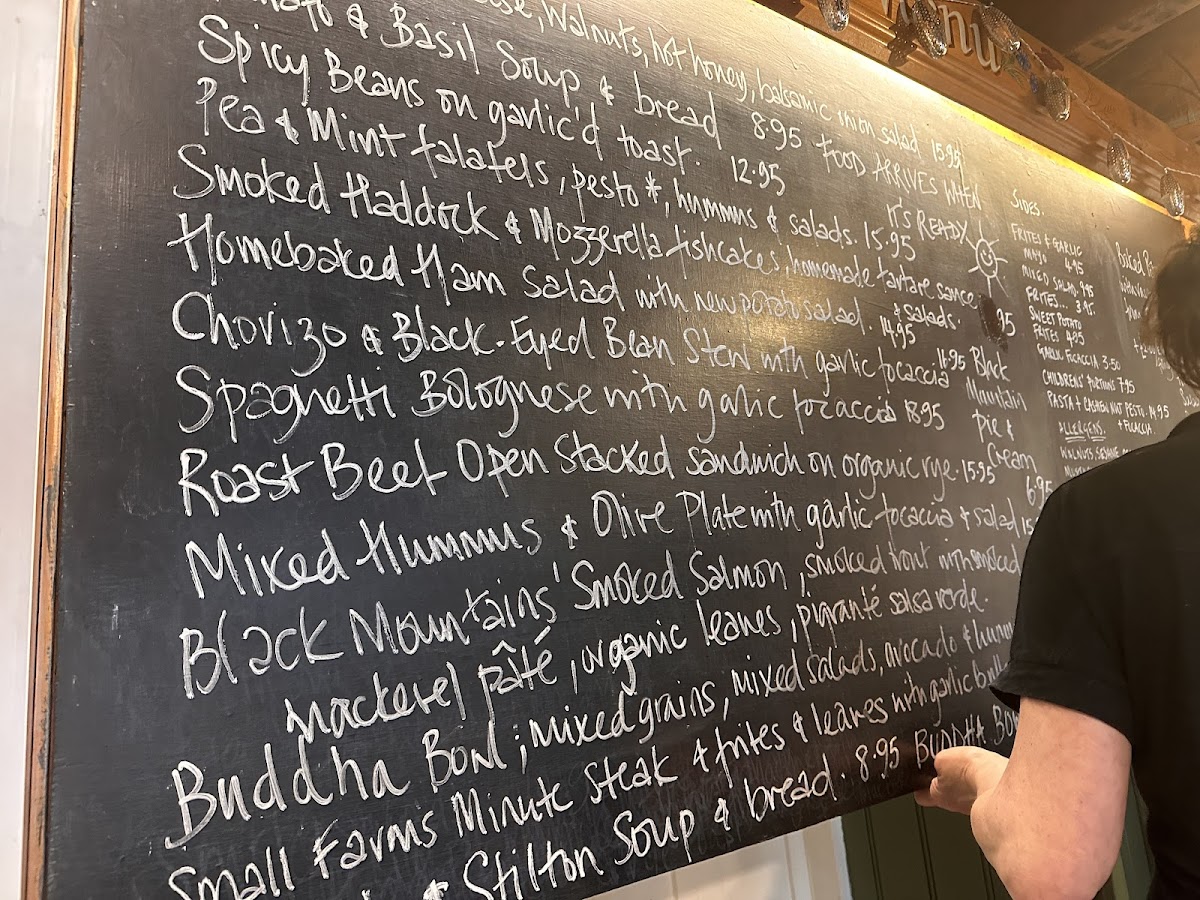 Menu
Walnuts, hot honey, balsamic onion salad 15.95
& Basil Soup & bread 8.95
FOOD ARRIVES WHEN
IT'S READY
Spicy Beans on garlic'd toast. 12.95
Pea & Mint falafels, pesto *, hummus & salads. 15.95
Smoked Haddock & Mozzerella fishcakes, homemade tartare sauce
& salads. 95
Homebaked Ham Salad with new potato salad. 14.95
Chorizo & Black-Eyed Bean Stew with garlic focaccia 16.95
Spaghetti Bolognese with garlic focaccia 18.95
Roast Beef Open Stacked sandwich on organic rye. 15.95
Mixed Hummus & Olive Plate with garlic focaccia & salad
Black Mountains' Smoked Salmon, smoked trout with smoked
mackerel pâté, organic leaves, piqranté salsa verde.
Buddha Bowl; mixed grains, mixed salads, avocado &
Small Farms Minute Steak & frites & leaves with garlic
& Stilton Soup & bread. 8.95 BUDDHA
Black
Mountain
Pie &
Cream
6.95
SIDES.
FRITES & GARLIC
MAYO 4.95
MIXED SALAD
FRITES.. 3.95.
SWEET POTATO
FRITES 4.85
GARLIC FOCACCIA 3.50
CHILDRENS PORTIONS 7.95
PASTA & CASHEW NUT PESTO. 14.95
+ FOCACCIA.
ALLERGENS.
WALNUTS, SESAME
Baked